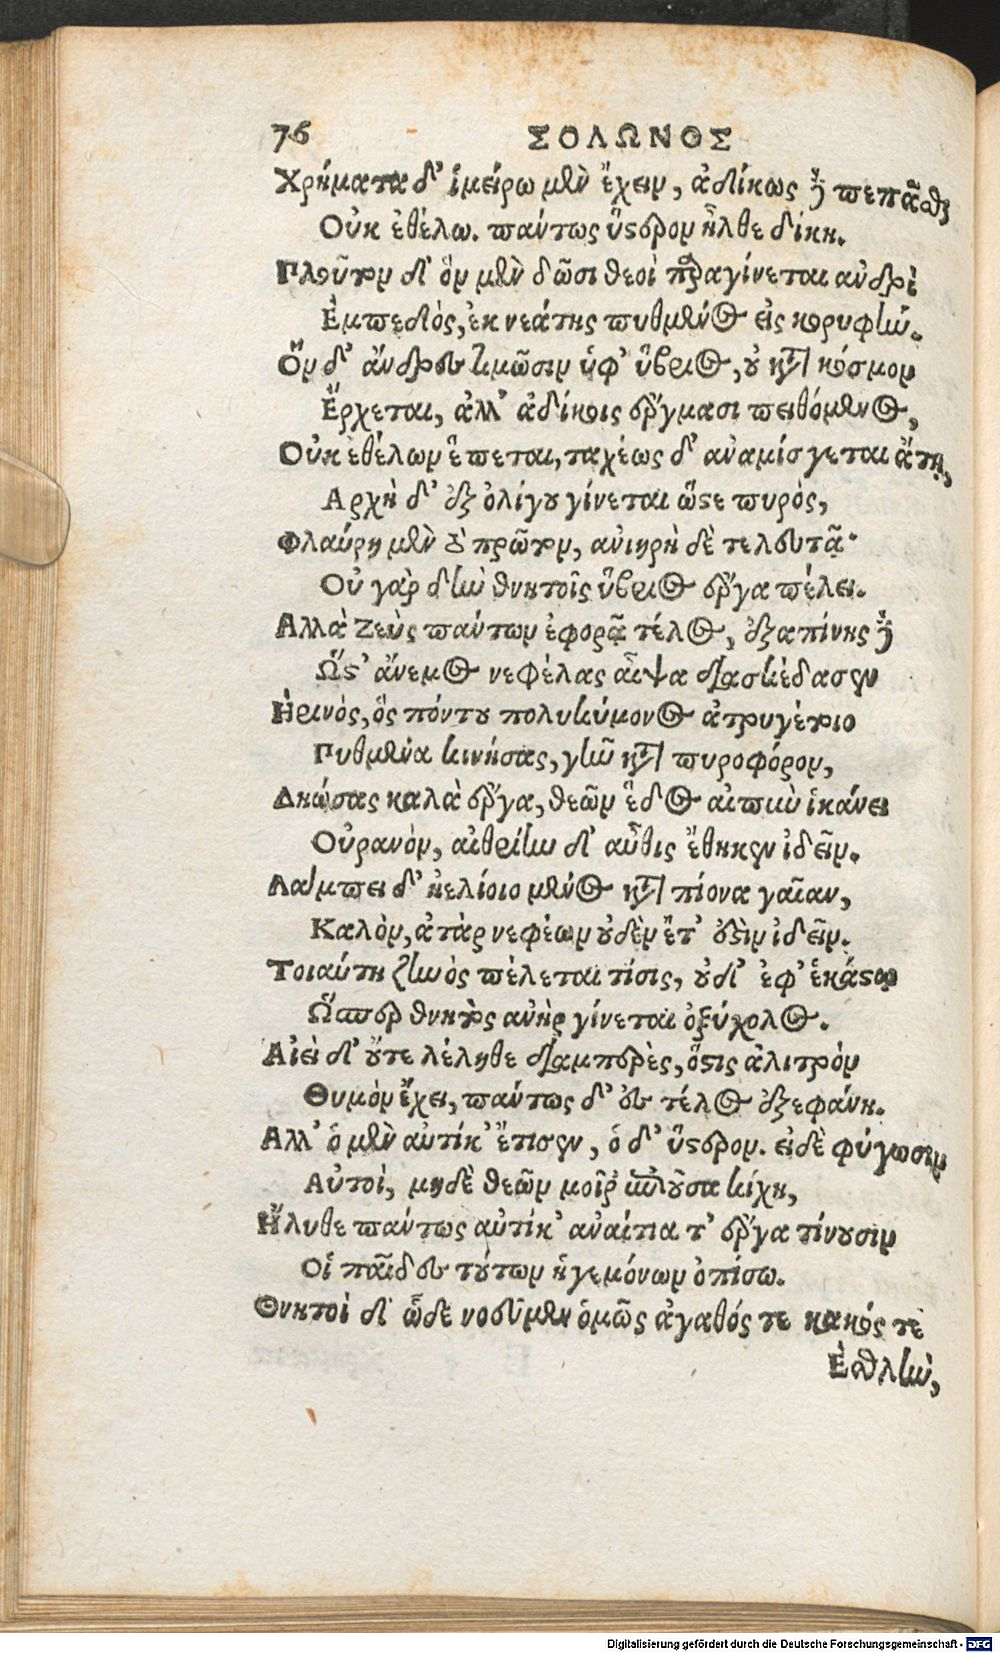 76 ΣΟΛΩΝΟΣ
Χρήματα δ' ἱμείρω μὲν ἔχειν, ἀδίκως ἢ πεπᾶσθαι
Οὐκ ἐθέλω. πάντως ὕστερον ἦλθε δίκη.
Πλοῦτον δ' ὃν μὲν δῶσι θεοὶ παραγίνεται ἀνδρὶ
Ἐμπεδὸς, ἐκ νεάτης πυθμένος εἰς κορυφήν.
Ὃν δ' ἄνδρες τιμῶσιν ὑφ' ὕβριος, οὐ κατὰ κόσμον
Ἔρχεται, ἀλλ' ἀδίκοις ἔργμασι πειθόμενος,
Οὐκ ἐθέλων ἕπεται, ταχέως δ' ἀναμίσγεται ἄτη,
Αρχὴ δ' ἐξ ὀλίγου γίνεται ὥστε πυρὸς,
Φλαύρη μὲν τὸ πρῶτον, ἀνιηρὴ δὲ τελευτᾷ·
Οὐ γὰρ δὴν θνητοῖς ὕβριος ἔργα πέλει.
Αλλὰ Ζεὺς πάντων ἐφορᾷ τέλος, ἐξαπίνης δὲ
Ὥστ' ἄνεμος νεφέλας αἶψα διασκέδασεν
Ἠρινὸς, ὃς πόντου πολυκύμονος ἀτρυγέτοιο
Πυθμένα κινήσας, γῆν κατὰ πυροφόρον,
Δηώσας καλὰ ἔργα, θεῶν ἕδος αἰπὺν ἱκάνει
Οὐρανὸν, αἰθρίην δ' αὖθις ἔθηκεν ἰδεῖν.
Λάμπει δ' ἠελίοιο μένος κατὰ πίονα γαῖαν,
Καλὸν, ἀτὰρ νεφέων οὐδὲν ἔτ' ἐστὶν ἰδεῖν.
Τοιαύτη Ζηνὸς πέλεται τίσις, οὐδ' ἐφ' ἑκάστῳ
Ὥσπερ θνητὸς ἀνὴρ γίνεται ὀξύχολος.
Αἰεὶ δ' οὔτε λέληθε διαμπερὲς, ὅστις ἀλιτρὸν
Θυμὸν ἔχει, πάντως δ' ἐς τέλος ἐξεφάνη.
Αλλ' ὁ μὲν αὐτίκ' ἔτισεν, ὁ δ' ὕστερον. εἰ δὲ φύγωσιν
Αὐτοὶ, μηδὲ θεῶν μοῖρ' ἐπιοῦσα κίχη,
Ἤλυθε πάντως αὐτίκ' ἀναίτια τ' ἔργα τίνουσιν
Οἱ παῖδες τούτων ἡγεμόνων ὀπίσω.
Θνητοὶ δ' ὧδε νοεῦμεν ὁμῶς ἀγαθός τε κακός τε
Ἐσθλὴν,
Digitalisierung gefördert durch die Deutsche Forschungsgemeinschaft - DFG